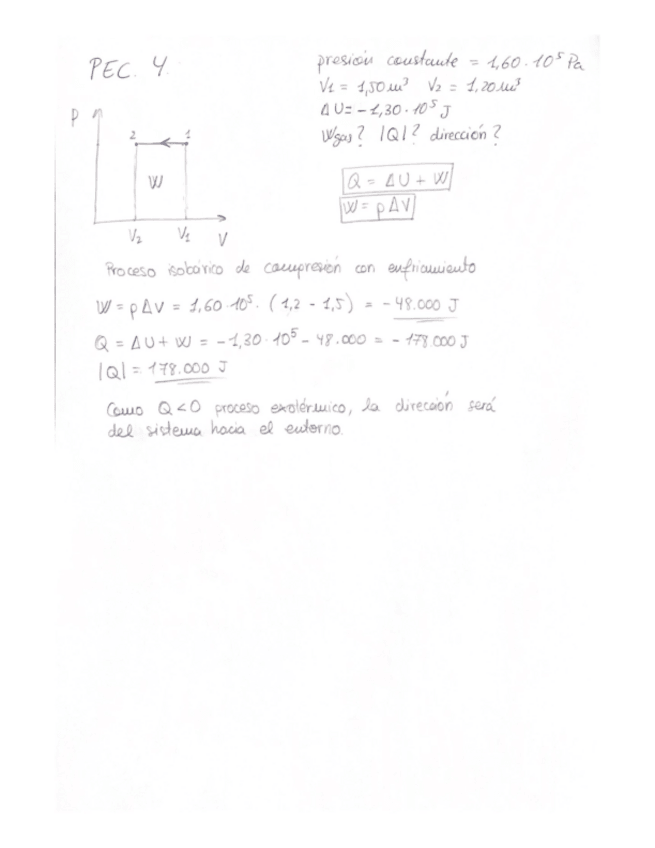 PEC. 4.
presión constante = 1,60·10⁵ Pa
V₁ = 1,50 m³ V₂ = 1,20 m³
ΔU = -1,30·10⁵ J
Wgas? |Q|? dirección?
P
2 1
W
V₂ V₁ V
Q = ΔU + W
W = pΔV
Proceso isobárico de compresión con enfriamiento
W = pΔV = 1,60·10⁵·(1,2 - 1,5) = -48.000 J
Q = ΔU + W = -1,30·10⁵ - 48.000 = -178.000 J
|Q| = 178.000 J
Como Q<0 proceso exotérmico, la dirección será
del sistema hacia el entorno.